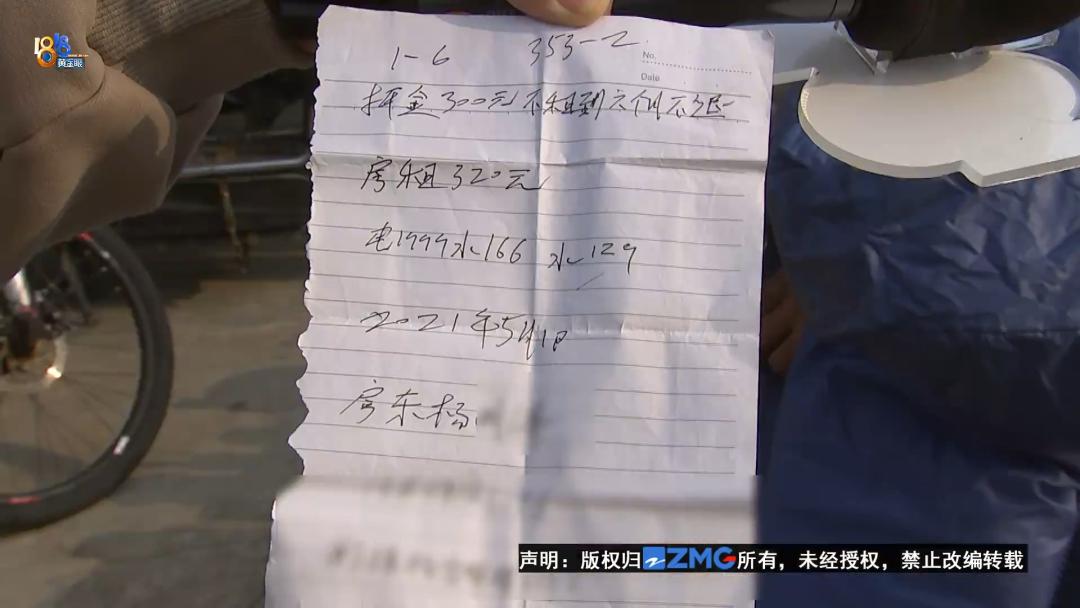 1818
黄金眼
1-6 353-2
No.
Date
押金300元不租到六个月不退
房租320元
电1999水166 水129
2021年5月1日
房东杨
声明：版权归ZMG所有，未经授权，禁止改编转载